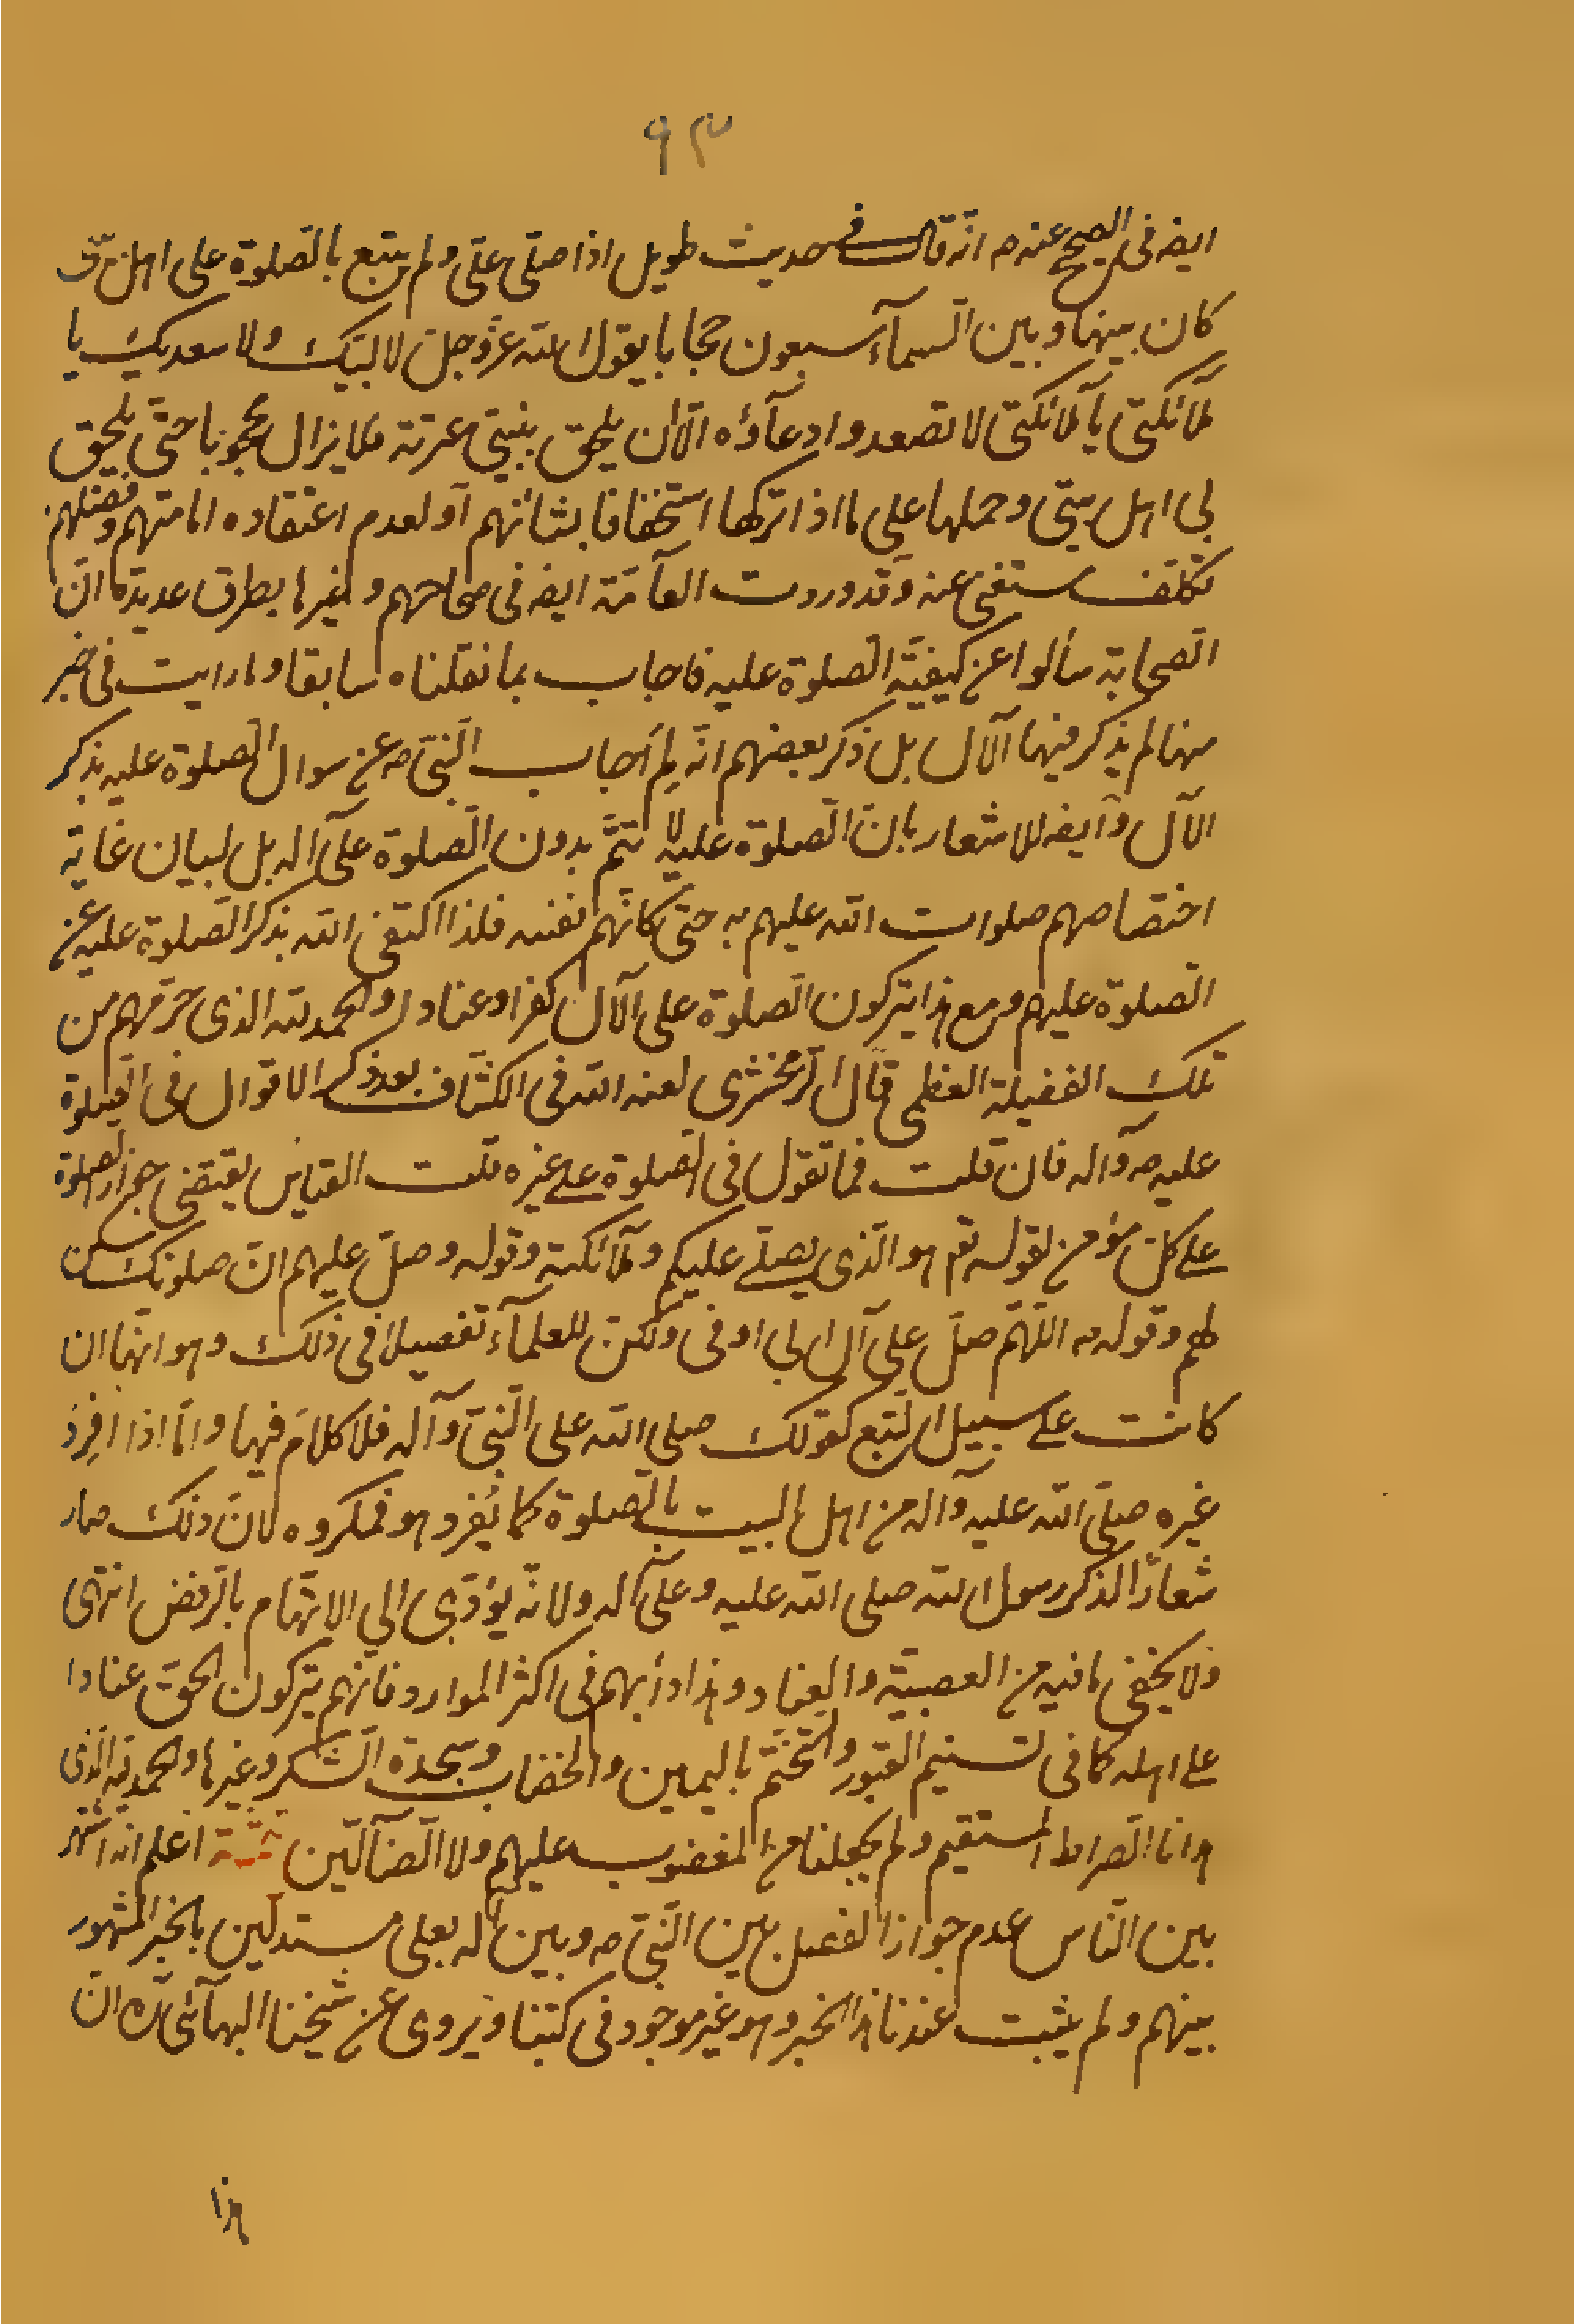 ٩٣
ايضه فى الصحيح عنه ص انّه قال فى حديث طويل اذا صلّى علىّ ولم يتبع بالصّلوة على اهل بيتى
كان بينها وبين السّمآء سبعون حجابا يقول الله عزّوجلّ لا لبّيك ولا سعديك يا
ملائكتى يا ملائكتى لا تصعدوا دعآؤه الّا ان يلحق بنبيّى عترته فلا يزال محجوبا حتّى يلحق
بى اهل بيتى وحملها على ما اذا تركها استخفافا بشانهم او لعدم اعتقاده امامتهم وفضلهم
تكلّف مستغنى عنه وقد وردت العآمّة ايضه فى صحاحهم وغيرها بطرق عديدة ان
الصّحابة سألوا عن كيفيّة الصّلوة عليه فاجاب بما نقلناه سابقا وما رايت فى خبر
منها لم يذكر فيها الآل بل ذكر بعضهم انّه لِمَ اجاب النّبى ص عن سوال الصّلوة عليه بذكر
الآل وايضه للاشعار بانّ الصّلوة عليه لا تتمّ بدون الصّلوة على آله بل لبيان غاية
اختصاصهم صلوات الله عليهم به حتّى كانّهم نفسه فلذا اكتفى الله بذكر الصّلوة عليه عن
الصّلوة عليهم ومع هذا يتركون الصّلوة على الآل كفرا وعنادا والحمد لله الذى حرّمهم من
تلك الفضيلة العظمى قال الزّمخشرى لعنه الله فى الكشّاف بعد ذكر الاقوال فى الصّلوة
عليه ص وآله فان قلت فما تقول فى الصّلوة على غيره قلت القياس يقتضى جواز الصلوة
على كلّ مؤمن لقوله تعم هو الّذى يصلّى عليكم وملائكته وقوله وصلّ عليهم انّ صلوتك سكن
لهم وقوله ص اللّهمّ صلّ على آل ابى اوفى ولكنّ للعلمآء تفصيلا فى ذلك وهو انّها ان
كانت على سبيل التّبع كقولك صلى الله على النّبىّ وآله فلا كلام فيها وامّا اذا اُفرِدَ
غيره صلّى الله عليه وآله من اهل البيت بالصّلوة كما يُفرد هو فمكروه لانّ ذلك صار
شعارًا لذكر رسول الله صلى الله عليه وعلى آله ولانّه يؤدّى الى الاتّهام بالرّفض انتهى
ولا يخفى ما فيه من العصبيّة والعناد وهذا دأبهم فى اكثر الموارد فانّهم يتركون الحقّ عنادا
على اهله كما فى تسنيم القبور والتّختّم باليمين والخضاب وسجدة الشّكر وغيرها والحمد لله الّذى
هدانا الصّراط المستقيم ولم يجعلنا من المغضوب عليهم ولا الضّآلّين تتمّة اعلم انه اشتهر
بين النّاس عدم جواز الفصل بين النّبىّ ص وبين آله بعلى مستدلّين بالخبر المشهور
بينهم ولم يثبت عندنا هذا الخبر وهو غير موجود فى كتبنا ويروى عن شيخنا البهآئى ره ان
هذا